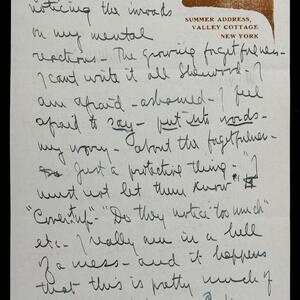 noticing the inroads
SUMMER ADDRESS,
VALLEY COTTAGE
NEW YORK
on my mental
reactions – The growing forgetfulness –
I can't write it all Sherwood – I
am afraid – ashamed – I feel
afraid to say – put into words –
my worry – about the forgetfulness –
Just a protective thing – "I
must not let them know"
"Cover up" – "Do they notice too much"
etc – I really am in a hell
of a mess – and it happens
that this is pretty much of